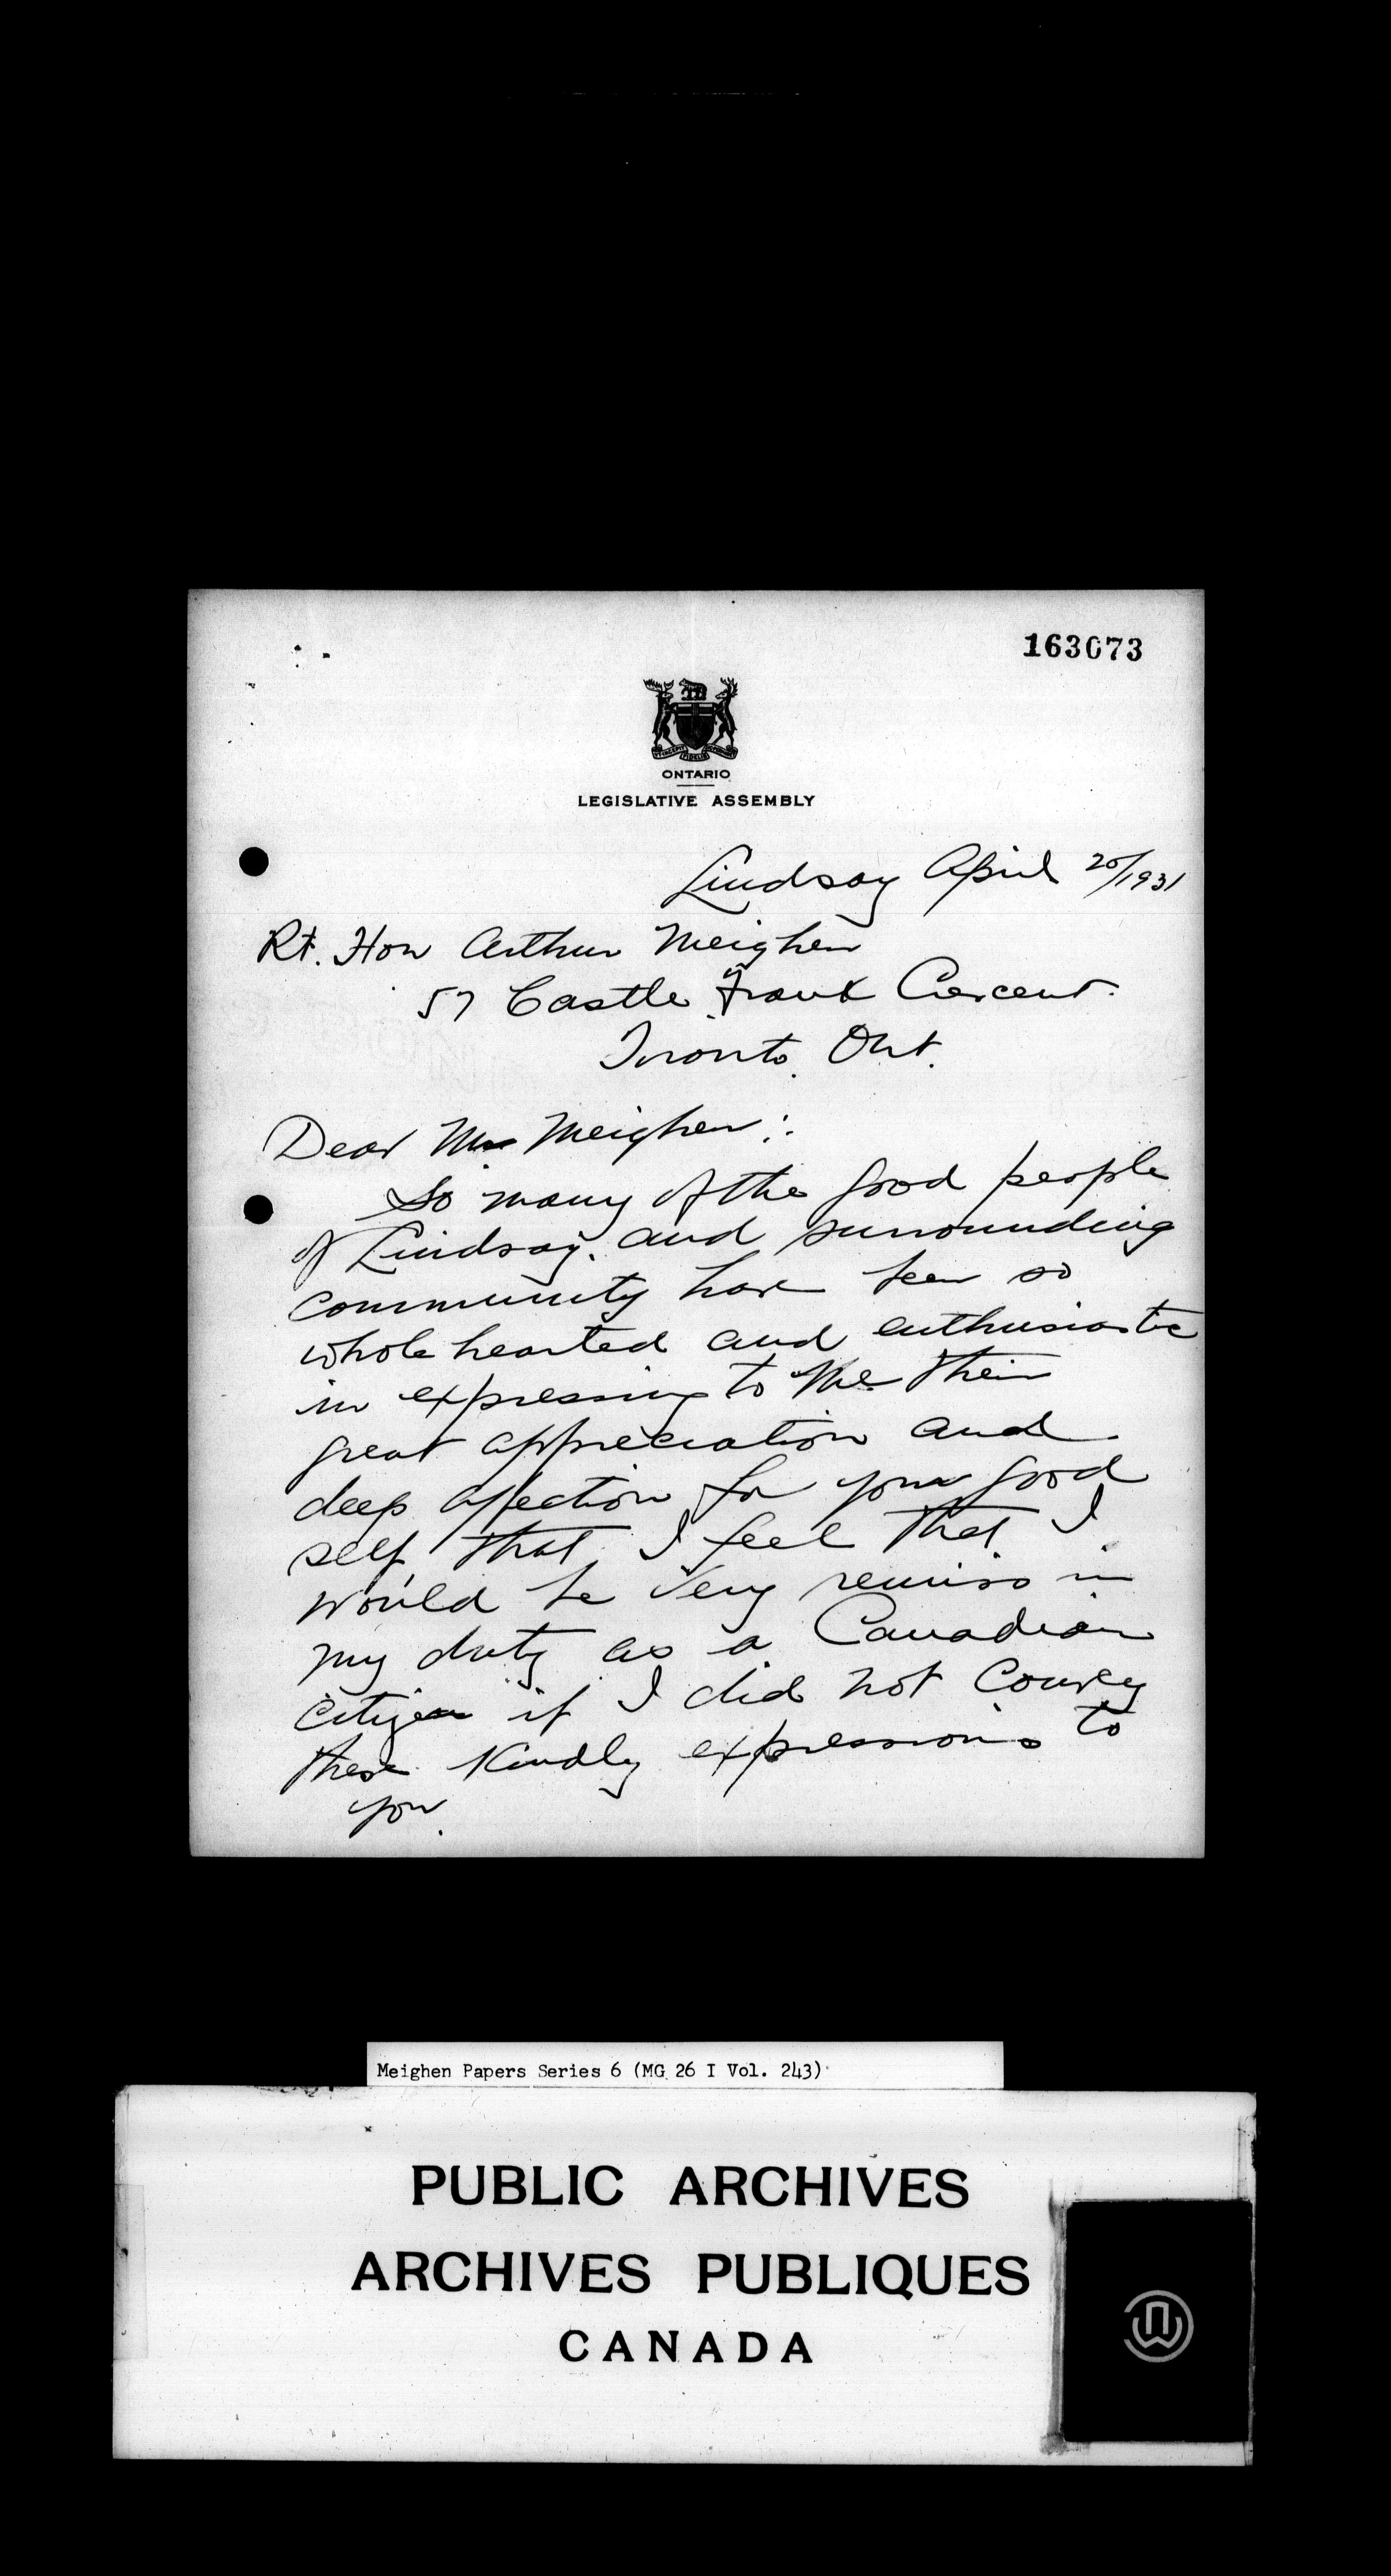 163073
ONTARIO
LEGISLATIVE ASSEMBLY
Lindsay April 20/1931
Rt. Hon Arthur Meighen
57 Castle Frank Crescent.
Toronto. Ont.
Dear Mr Meighen:
So many of the good people
of Lindsay. and surrounding
community have been so
whole hearted and enthusiastic
in expressing to me their
great appreciation and
deep affection for your good
self, that I feel that I
would be very remiss in
my duty as a Canadian
citizen if I did not convey
these kindly expressions to
you.
Meighen Papers Series 6 (MG 26 I Vol. 243)
PUBLIC ARCHIVES
ARCHIVES PUBLIQUES
CANADA